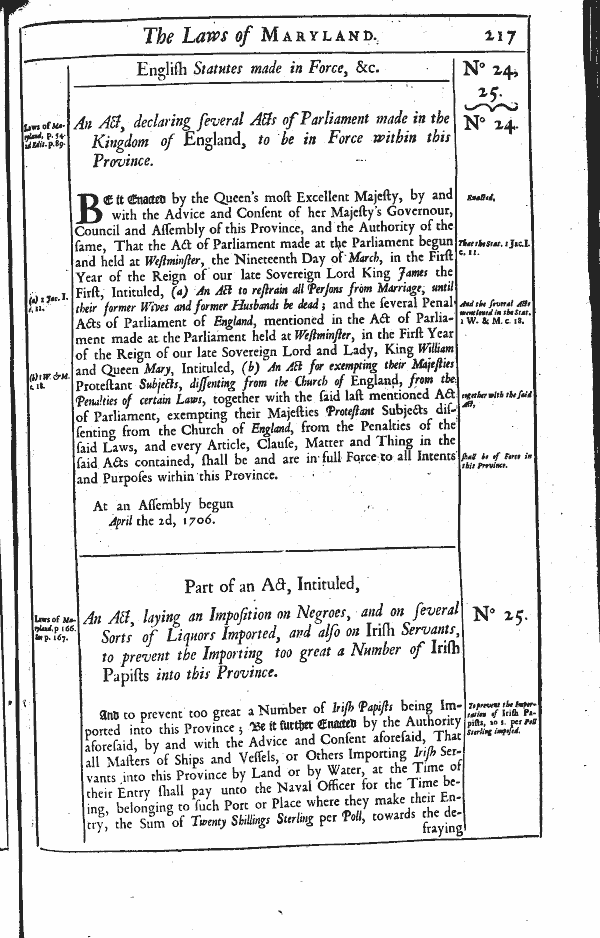 The Laws of MARYLAND. 217
Engliſh Statutes made in Force, &c.
N° 24,
25.
N° 24.
Laws of Ma-
ryland, p. 54.
2d Edit. p. 89.
An Act, declaring ſeveral Acts of Parliament made in the
Kingdom of England, to be in Force within this
Province.
BE it Enacted by the Queen's moſt Excellent Majeſty, by and
with the Advice and Conſent of her Majeſty's Governour,
Council and Aſſembly of this Province, and the Authority of the
ſame, That the Act of Parliament made at the Parliament begun
and held at Weſtminſter, the Nineteenth Day of March, in the Firſt
Year of the Reign of our late Sovereign Lord King James the
Firſt, Intituled, (a) An Act to reſtrain all Perſons from Marriage, until
their former Wives and former Husbands be dead; and the ſeveral Penal
Acts of Parliament of England, mentioned in the Act of Parlia-
ment made at the Parliament held at Weſtminſter, in the Firſt Year
of the Reign of our late Sovereign Lord and Lady, King William
and Queen Mary, Intituled, (b) An Act for exempting their Majeſties
Proteſtant Subjects, diſſenting from the Church of England, from the
Penalties of certain Laws, together with the ſaid laſt mentioned Act
of Parliament, exempting their Majeſties Proteſtant Subjects diſ-
ſenting from the Church of England, from the Penalties of the
ſaid Laws, and every Article, Clauſe, Matter and Thing in the
ſaid Acts contained, ſhall be and are in full Force to all Intents
and Purpoſes within this Province.
Enacted,
That the Stat. 1 Jac. I.
c. 11.
(a) 1 Jac. I.
c. 11.
And the ſeveral Acts
mentioned in the Stat.
1 W. & M. c. 18.
(b) 1 W. & M.
c. 18.
together with the ſaid
Act,
ſhall be of Force in
this Province.
At an Aſſembly begun
April the 2d, 1706.
Part of an Act, Intituled,
Laws of Ma-
ryland, p 166.
p. 167.
An Act, laying an Impoſition on Negroes, and on ſeveral
Sorts of Liquors Imported, and alſo on Iriſh Servants,
to prevent the Importing too great a Number of Iriſh
Papiſts into this Province.
N° 25.
And to prevent too great a Number of Iriſh Papiſts being Im-
ported into this Province; Be it further Enacted by the Authority
aforeſaid, by and with the Advice and Conſent aforeſaid, That
all Maſters of Ships and Veſſels, or Others Importing Iriſh Ser-
vants into this Province by Land or by Water, at the Time of
their Entry ſhall pay unto the Naval Officer for the Time be-
ing, belonging to ſuch Port or Place where they make their En-
try, the Sum of Twenty Shillings Sterling per Poll, towards the de-
fraying
To prevent the Impor-
tation of Iriſh Pa-
piſts, 20 s. per Poll
Sterling impoſed.